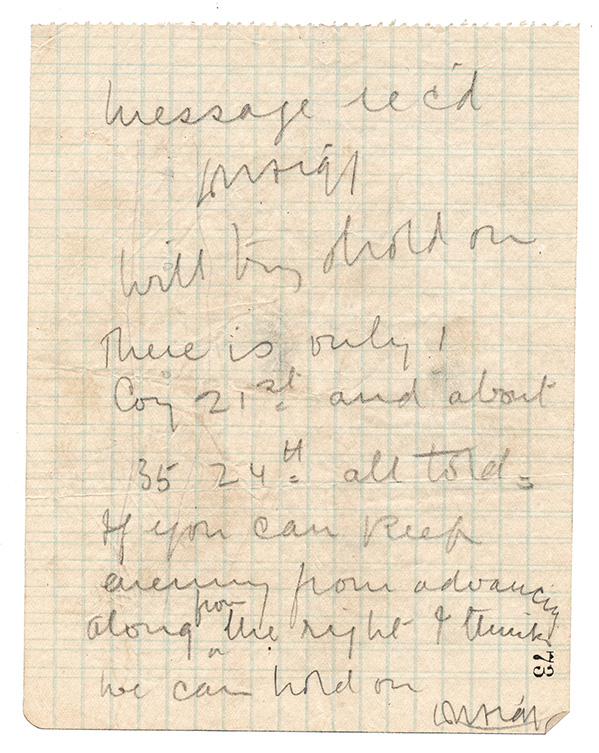 Message rec'd
Will try & hold on
There is only 1
Coy 21st. and about
35 24th. all told.
If you can keep
enemy from advancing
from
along the right I think
we can hold on
73